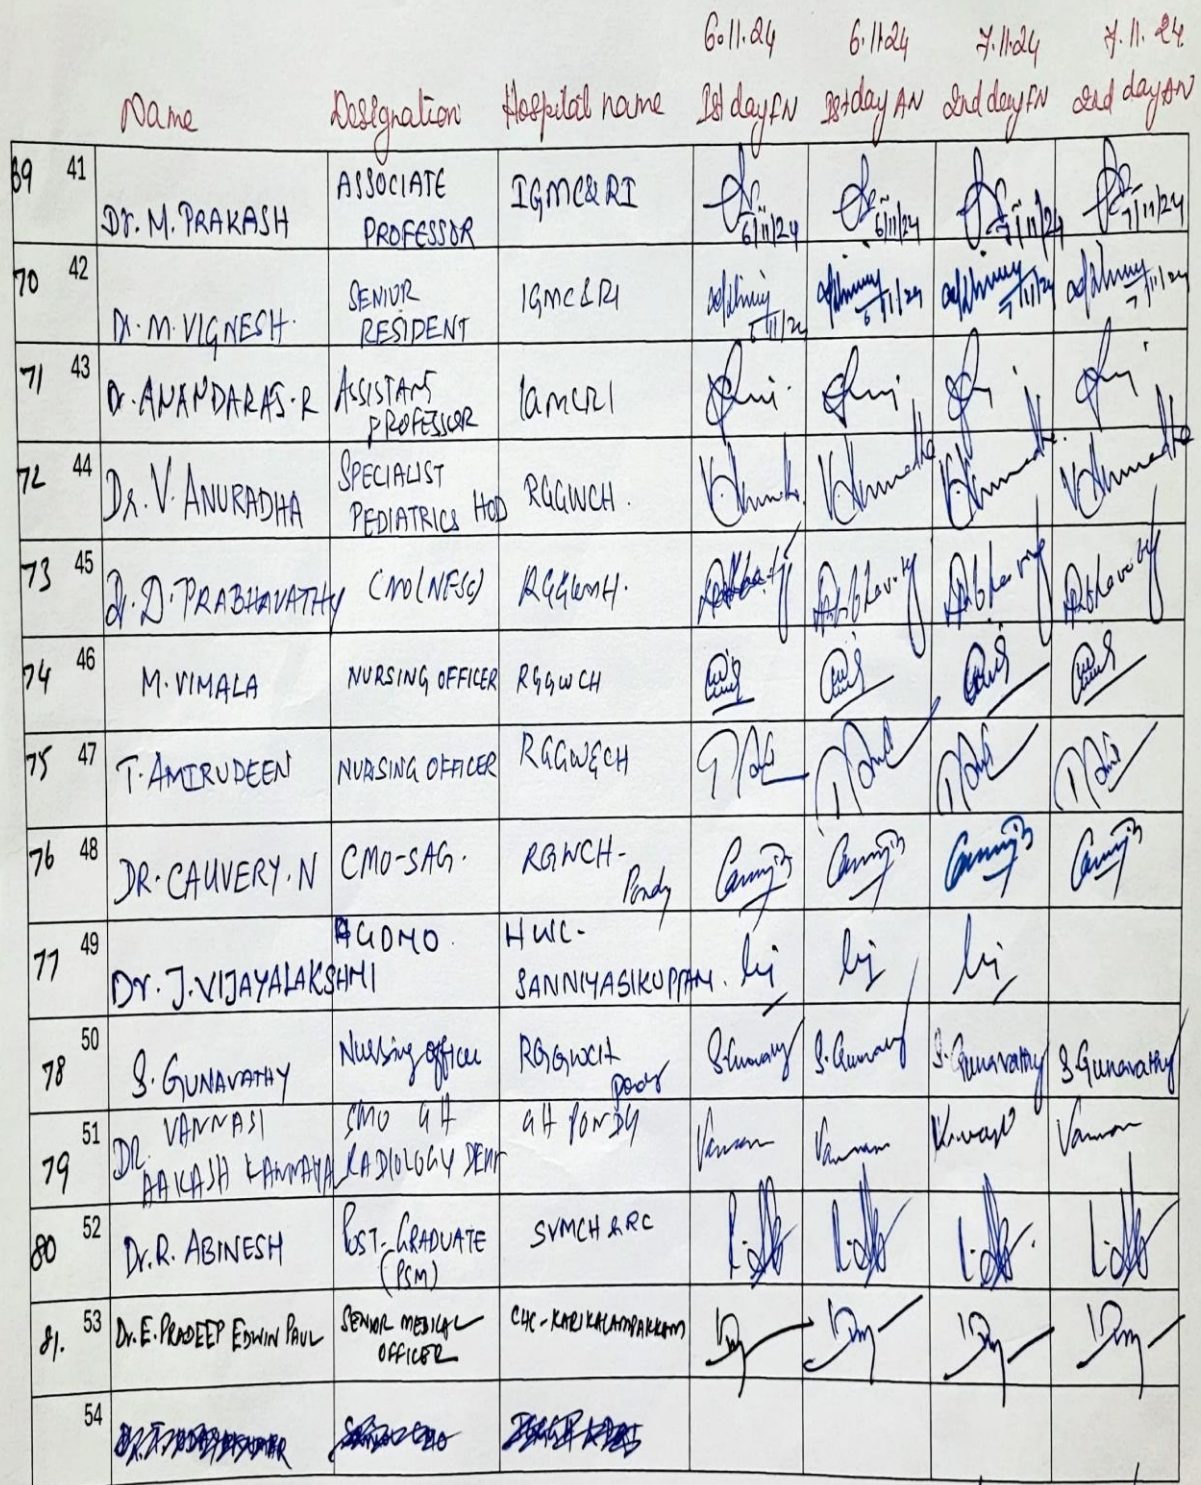 6.11.24 6.11.24 7.11.24 7.11.24
Name Designation Hospital name 1st day FN 1st day AN 2nd day FN 2nd day AN
69 41 Dr. M. PRAKASH ASSOCIATE PROFESSOR IGMC&RI 6/11/24 6/11/24 7/11/24 7/11/24
70 42 Dr. M. VIGNESH. SENIOR RESIDENT IGMC&RI 6/11/24 6/11/24 7/11/24 7/11/24
71 43 Dr. ANANDARAJ. R ASSISTANT PROFESSOR IGMCRI
72 44 Dr. V. ANURADHA SPECIALIST PEDIATRICS HOD RGGWCH. V. Anuradha V. Anuradha V. Anuradha
73 45 Dr. D. PRABHAVATHY CMO (NFSG)
74 46 M. VIMALA NURSING OFFICER RGGWCH
75 47 T. AMIRUDEEN NURSING OFFICER RGGW&CH
76 48 DR. CAUVERY. N CMO-SAG. RGWCH- Pondy
77 49 Dr. J. VIJAYALAKSHMI GDMO HWC- SANNIYASIKUPPAM.
78 50 S. GUNAVATHY Nursing officer RGGWCH S. Gunavathy S. Gunavathy
79 51 DR. VANNASI AAKASH KANNAYA SMO GH RADIOLOGY DEPT GH PONDY
80 52 Dr. R. ABINESH POST-GRADUATE (PSM) SVMCH & RC
81. 53 Dr. E. PRADEEP EDWIN PAUL SENIOR MEDICAL OFFICER CHC-KARIKALAMPAKKAM
54